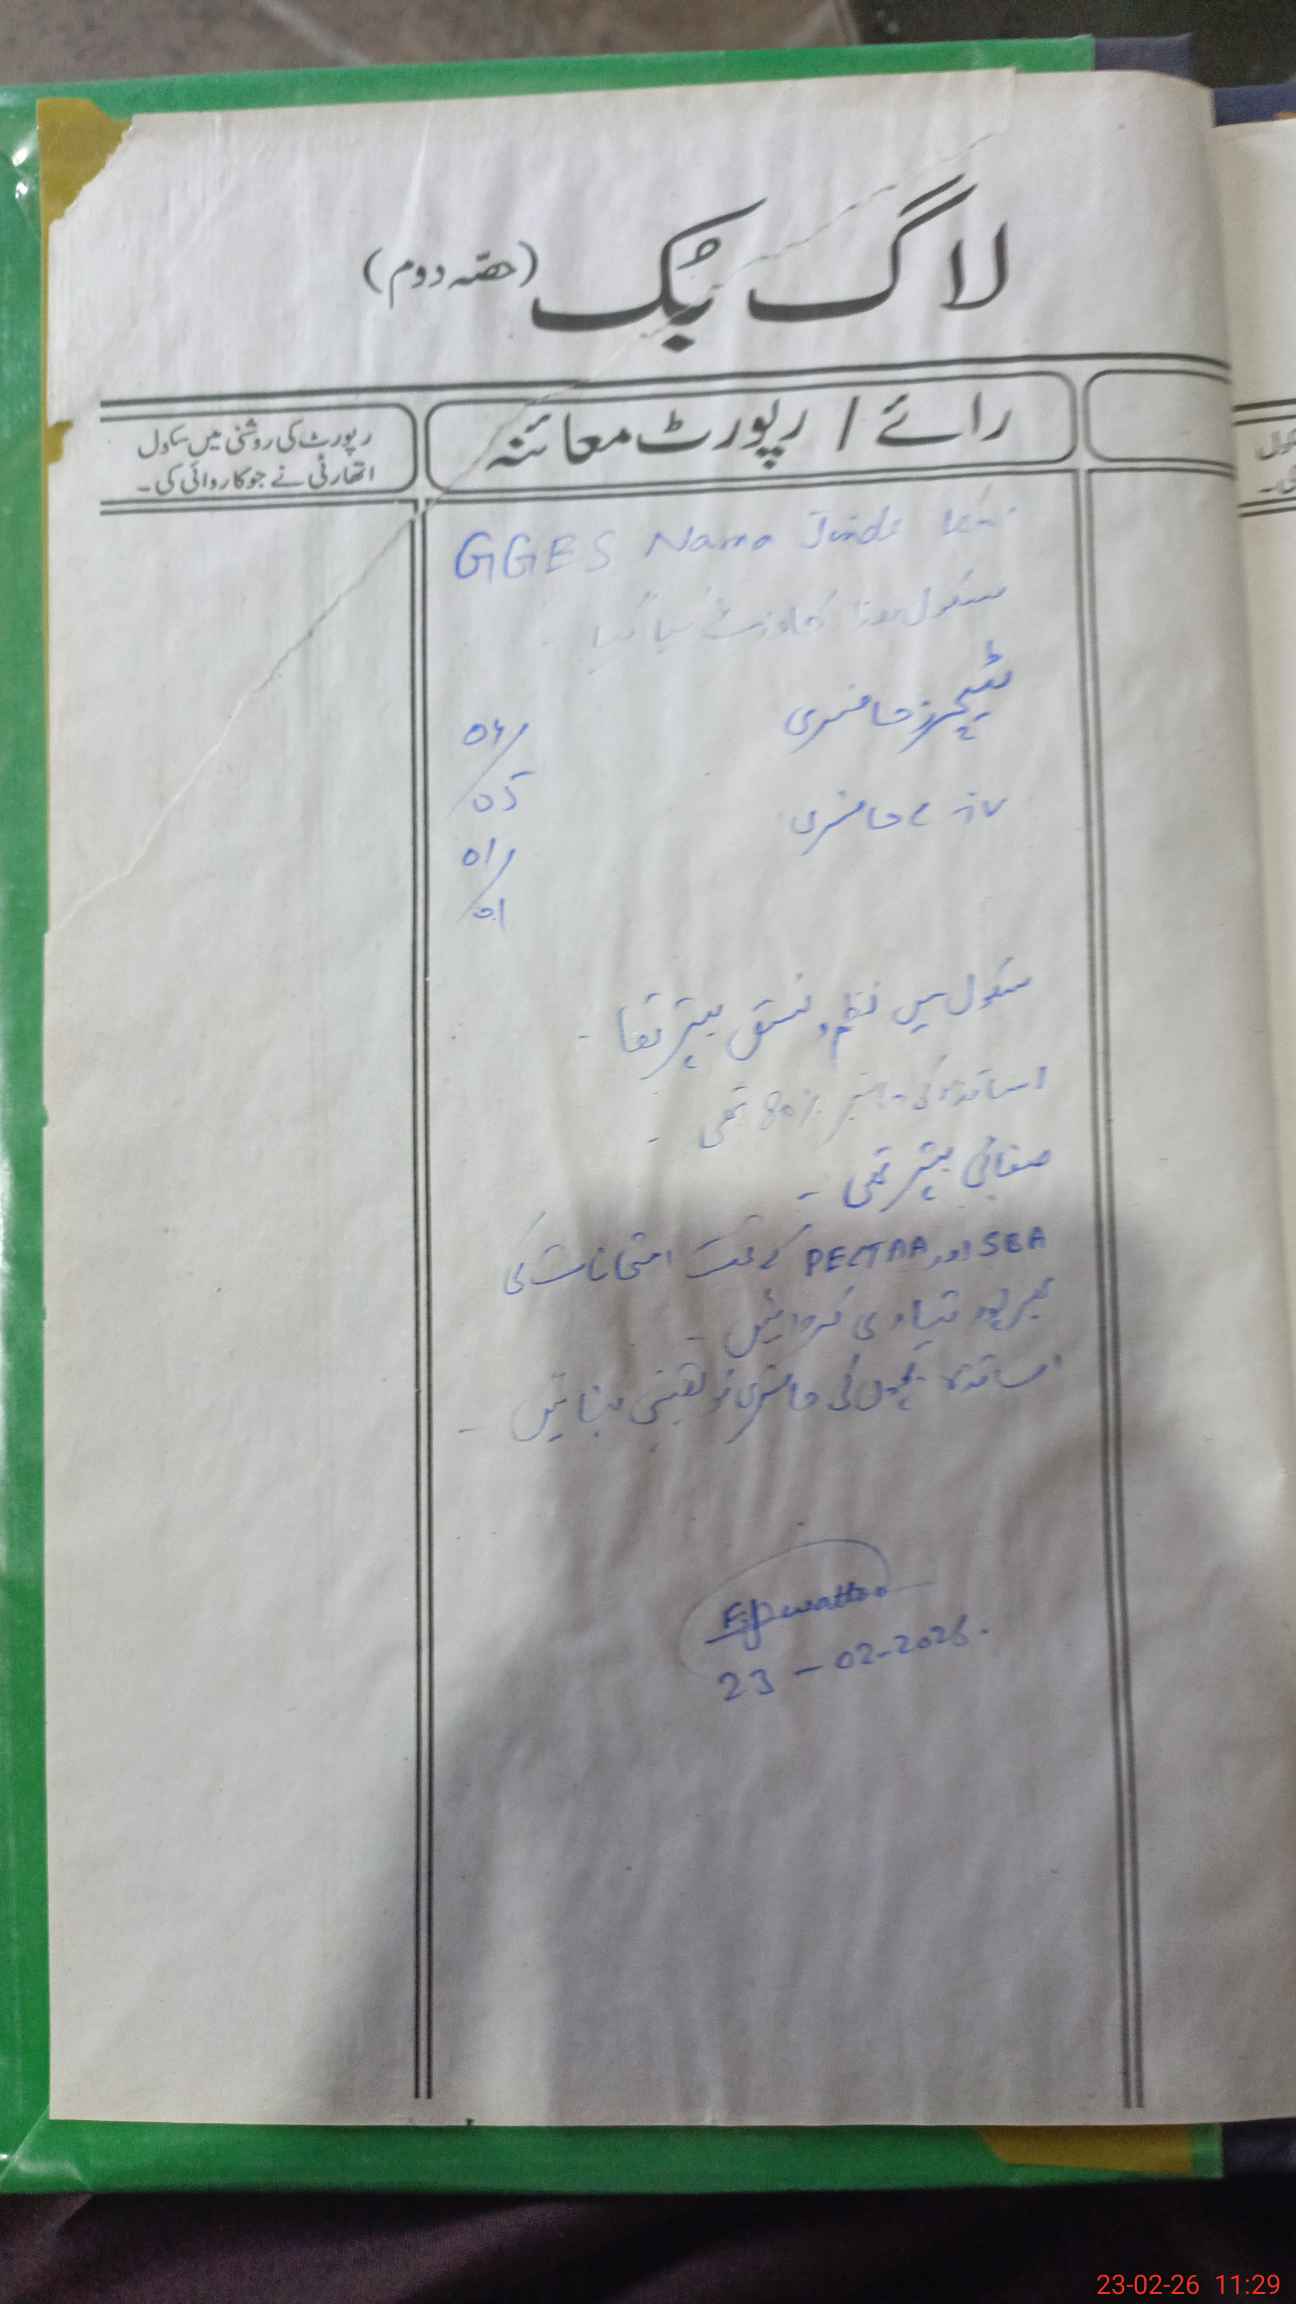 لاگ بُک (حصّہ دوم)
رائے / رپورٹ معائنہ
رپورٹ کی روشنی میں سکول
اتھارٹی نے جو کاروائی کی۔
GGES Nama Jinda
سکول ہذا کا وزٹ کیا گیا ۔
ٹیچرز حاضری 04/05
حاضری 01/01
سکول میں نظم و نسق بہتر تھا ۔
اساتذہ کی حاضری 80% تھی ۔
صفائی بہتر تھی ۔
SBA اور PECTAA کے تحت امتحانات کی
بھرپور تیاری کروائیں ۔
اساتذہ بچوں کی حاضری کو یقینی بنائیں ۔
23-02-2026.
کول
کی۔
23-02-26 11:29